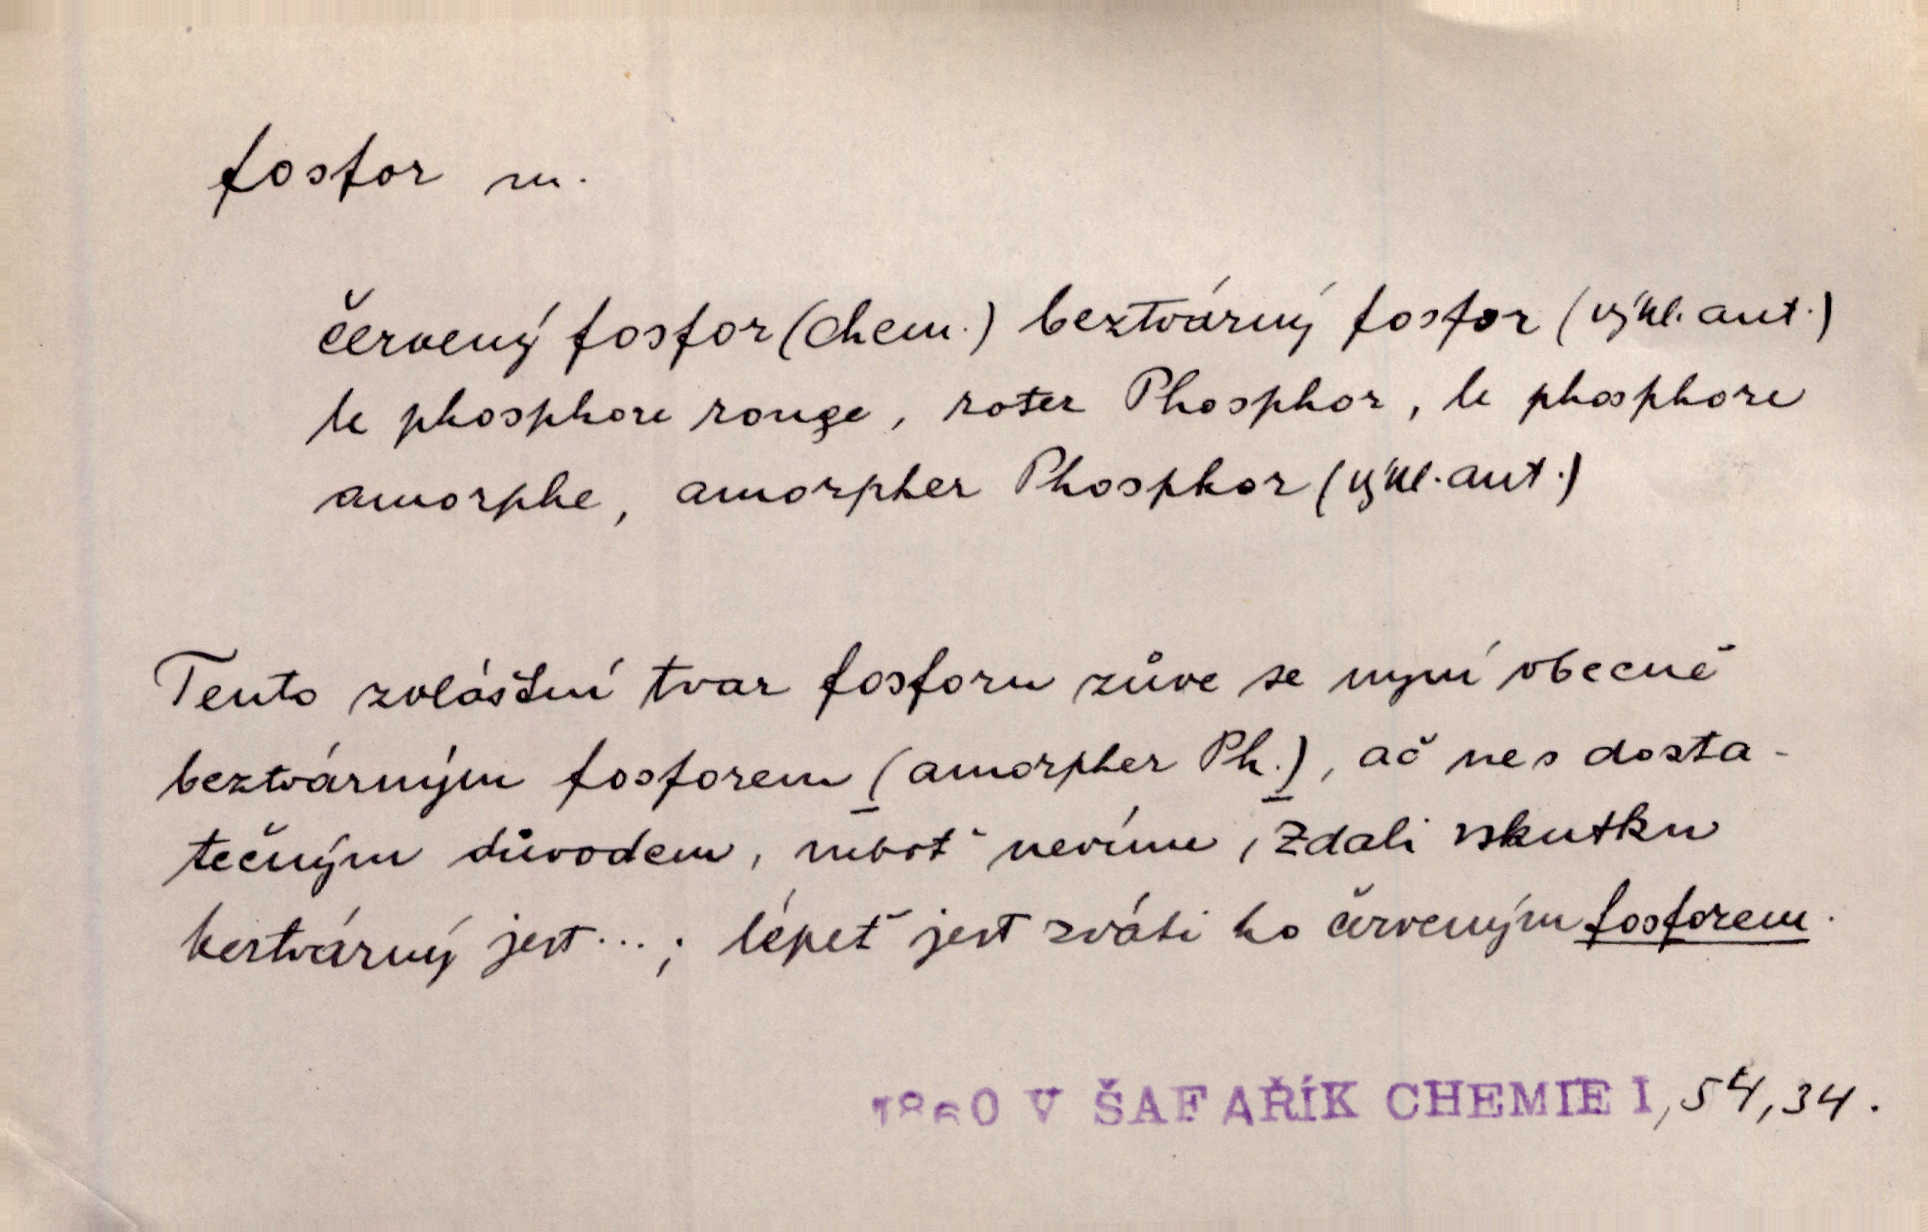 fosfor m.
červený fosfor (chem.) beztvárný fosfor (výkl. aut.)
le phosphore rouge, roter Phosphor, le phosphore
amorphe, amorpher Phosphor (výkl. aut.)
Tento zvláštní tvar fosforu zůve se nyní obecně
beztvárným fosforem (amorpher Ph.), ač ne s dosta-
tečným důvodem, neboť nevíme, zdali vskutku
beztvárný jest...; lépeť jest zváti ho červeným fosforem.
1860 V ŠAFAŘÍK CHEMIE I, 54, 34.